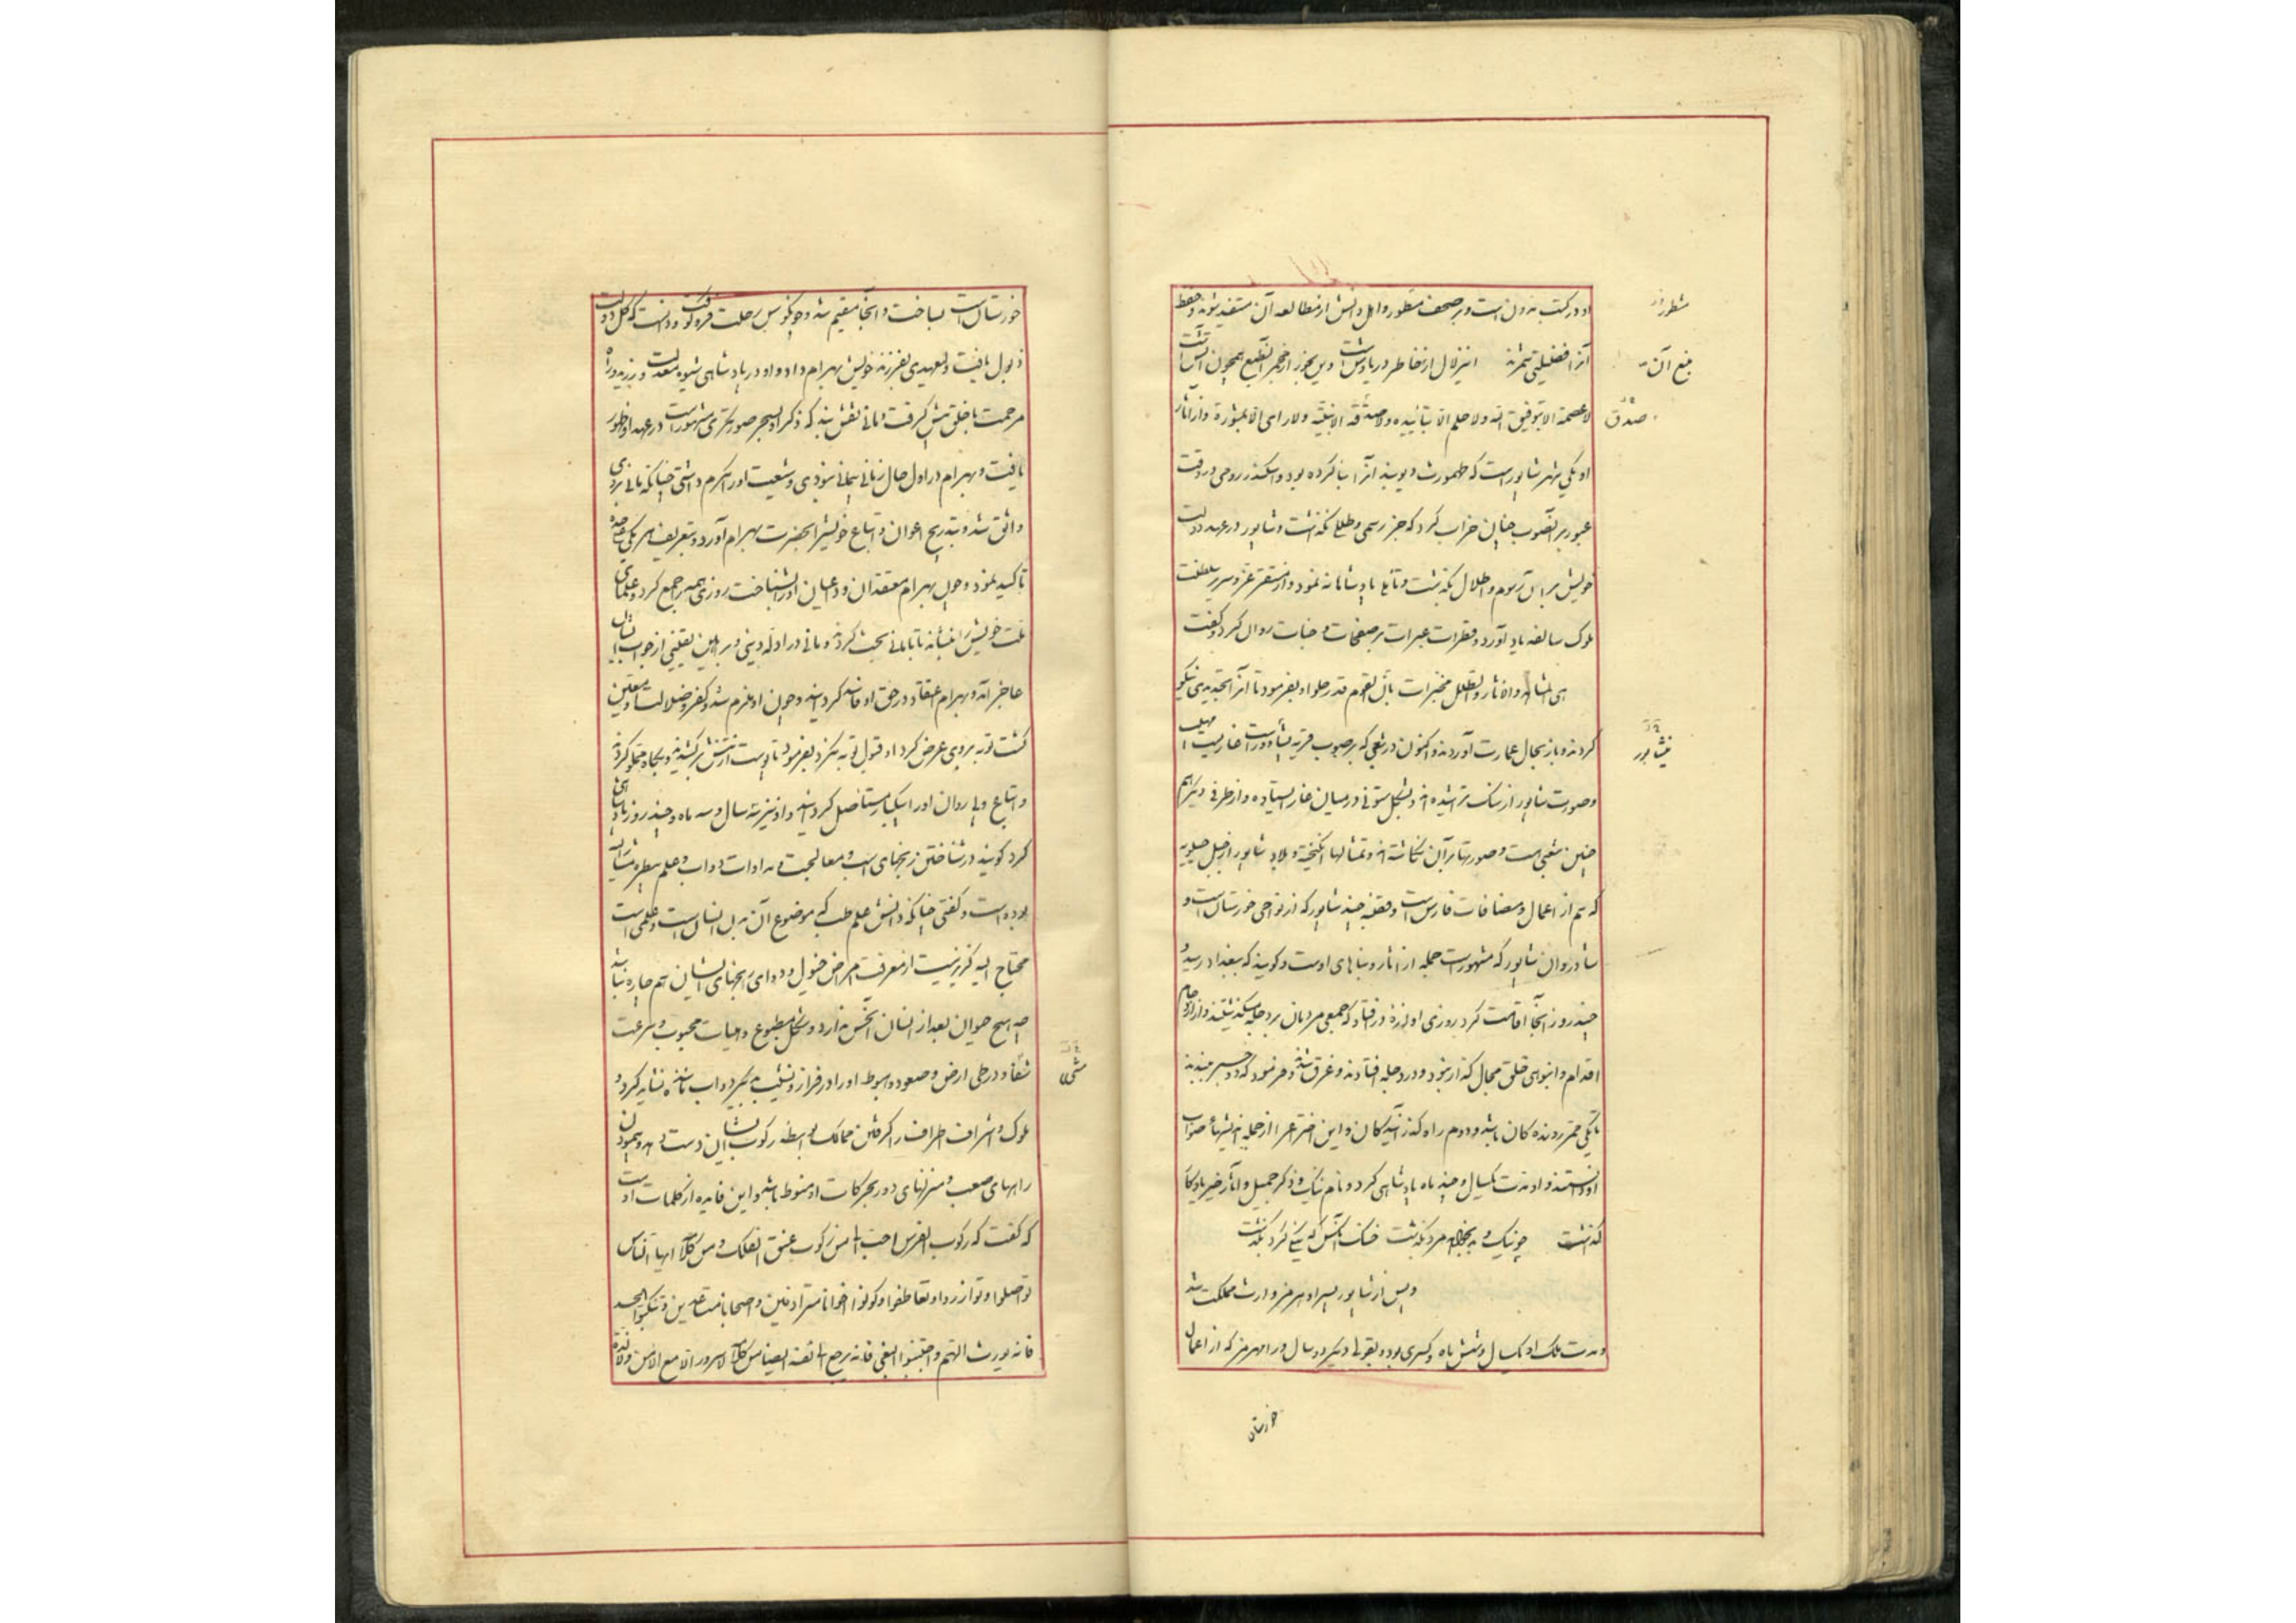 او در کتب مدون است و بر صحف مسطور و اهل دانش از مطالعه آن مستفید شوند و حفظ
آنرا فضیلتی شمرند این زلال از خاطر دریاوش است وین بخور از مجمر آن طبع همچون آتش است
لا عصمة الا بتوفیق الله ولا حلم الا بتائیده ولا صدقه الا بنیّة ولا رای الا بمشورة و از آثار
او یکی شهر شاپور است که طهمورث دیوبند آنرا بنا کرده بود و اسکندر رومی در وقت
عبور بر آنصوب چنان خراب کرد که جز رسمی و طللی نگذاشت و شاپور در عهد دولت
خویش بر آن رسوم و اطلال بگذشت و تامل پادشاهانه نمود و از مستقر عز و سریر سلطنت
ملوک سالفه یاد آورد و قطرات عبرات بر صفحات وجنات روان کرد و گفت
هی الدار والاثار والطلل مخبرات بان القوم قد رحلوا و بفرمود تا آنرا تجدیدی نیکو
کردند و باز بحال عمارت آوردند و اکنون در شعبی که بر صوب قریه نشاور است غاریست مهیب
و صورت شاپور از سنگ تراشیده اند و بشکل ستونی در میان غار ایستاده و از طرفی دیگر هم
چنین شعبی است و صورتها بر آن نگاشته اند و تمثالها انگیخته و بلاد شاپور از جبل جیلویه
که هم از اعمال و مضافات فارس است و قصبه جند شاپور که از نواحی خوزستان است و
شادروان شاپور که مشهور است جمله از آثار و بناهای اوست و گویند که ببغداد رسید و
چند روز آنجا اقامت کرد روزی او لرزه در افتاد که جمعی مردمان بر دجله میگذشتند و از ازدحام
اقدام و انبوهی خلق مجال گذار نبود و در دجله افتادند و غرق شدند و فرمود که دو جسر ببندند
تا یکی ممر روندگان باشد و دوم راه گذر آیندگان و این اختراع از جمله اندیشهاء صواب
او دانستند و او مدت یکسال و چند ماه پادشاهی کرد و نام نیک و ذکر جمیل و آثار خیر یادگار
گذاشت چو نیک و بد بجمله مرد بگذشت خنک آنکس که نیکی کرد بگذشت
و پس از شاپور پسر او هرمز وارث مملکت شد
و مدت ملک او یکسال و شش ماه و کسری بود و بقولی دیگر دو سال و رامهرمز که از اعمال
خوزستان
مسطور و
منبع آن
صدق
نیشابور
خوزستان است بساخت و آنجا مقیم شد و چون کوس رحلت فرو کوفت و دانست که گل دولت
ذبول یافت ولیعهدی بفرزند خویش بهرام داد و او در پادشاهی شیوه معدلت ورزید و راه
مرحمت با خلق پیش گرفت و مانی نقش بند که ذکر او بسحر صورتگری مشهور است در عهد او ظهور
یافت و بهرام در اول حال زمانی بمانی نمودی و شعیت او را مکرم داشتی چنانکه مانی بروی
واثق شد و بتدریج اعوان و اتباع خویش را بحضرت بهرام آورد و بتعریف هر یکی علیحده
تاکید نمود و چون بهرام معتقدان و داعیان او را بشناخت روزی همه را جمع کرد و علمای
ملت خویش را بنشاند تا با مانی بحث کردند و مانی در ادله دینی و براهین یقینی از جواب ایشان
عاجز آمد و بهرام اعتقاد در حق او فاسد گردانید و چون او ملزم شد و کفر و ضلالت او متعین
گشت توبه بروی عرض کرد او قبول توبه نکرد بفرمود تا پوست از تنش برکشیدند و بکاه مملو کردند
و اتباع و پی روان او را بیکبار مستاصل گردانید و او نیز سه سال و سه ماه و چند روز پادشاهی
کرد گویند در شناختن رنجهای اسب و معالجت و مداوات دواب و علم بیطره مشار الیه
بوده است و گفتی چنانکه دانش علم طب که موضوع آن بدن انسان است و علمی است
محتاج الیه گزیر نیست از معرفت امراض خیول و دوای رنجهای ایشان هم چاره نباشد
چه هیچ حیوان بعد از انسان آن حسن ندارد و شکل مطبوع و هیات محبوب و سرعت
مشی او در طی ارض و صعود و هبوط او را در فراز و نشیب بدیگر دواب مانند نشاید کرد و
ملوک و اشراف اطراف را گرفتن ممالک بواسطه رکوب ایشان دست دهد و پیمودن
راههای صعب و منزلهای دور بحرکات او منوط باشد و این فایده از کلمات اوست
که گفت که رکوب الفرس احب الی من رکوب عنق الفلک و من کلامه ایها الناس
تواصلوا و توازروا و تعاطفوا و کونوا اخوانا مترادفین و اصحابا متساعدین و تنکبوا الحسد
فانه یورث الهم و اجتنبوا البغی فانه یرجع الی اهله ایضا من کلامه لا سرور الا مع الامن و لا لذة
مشی